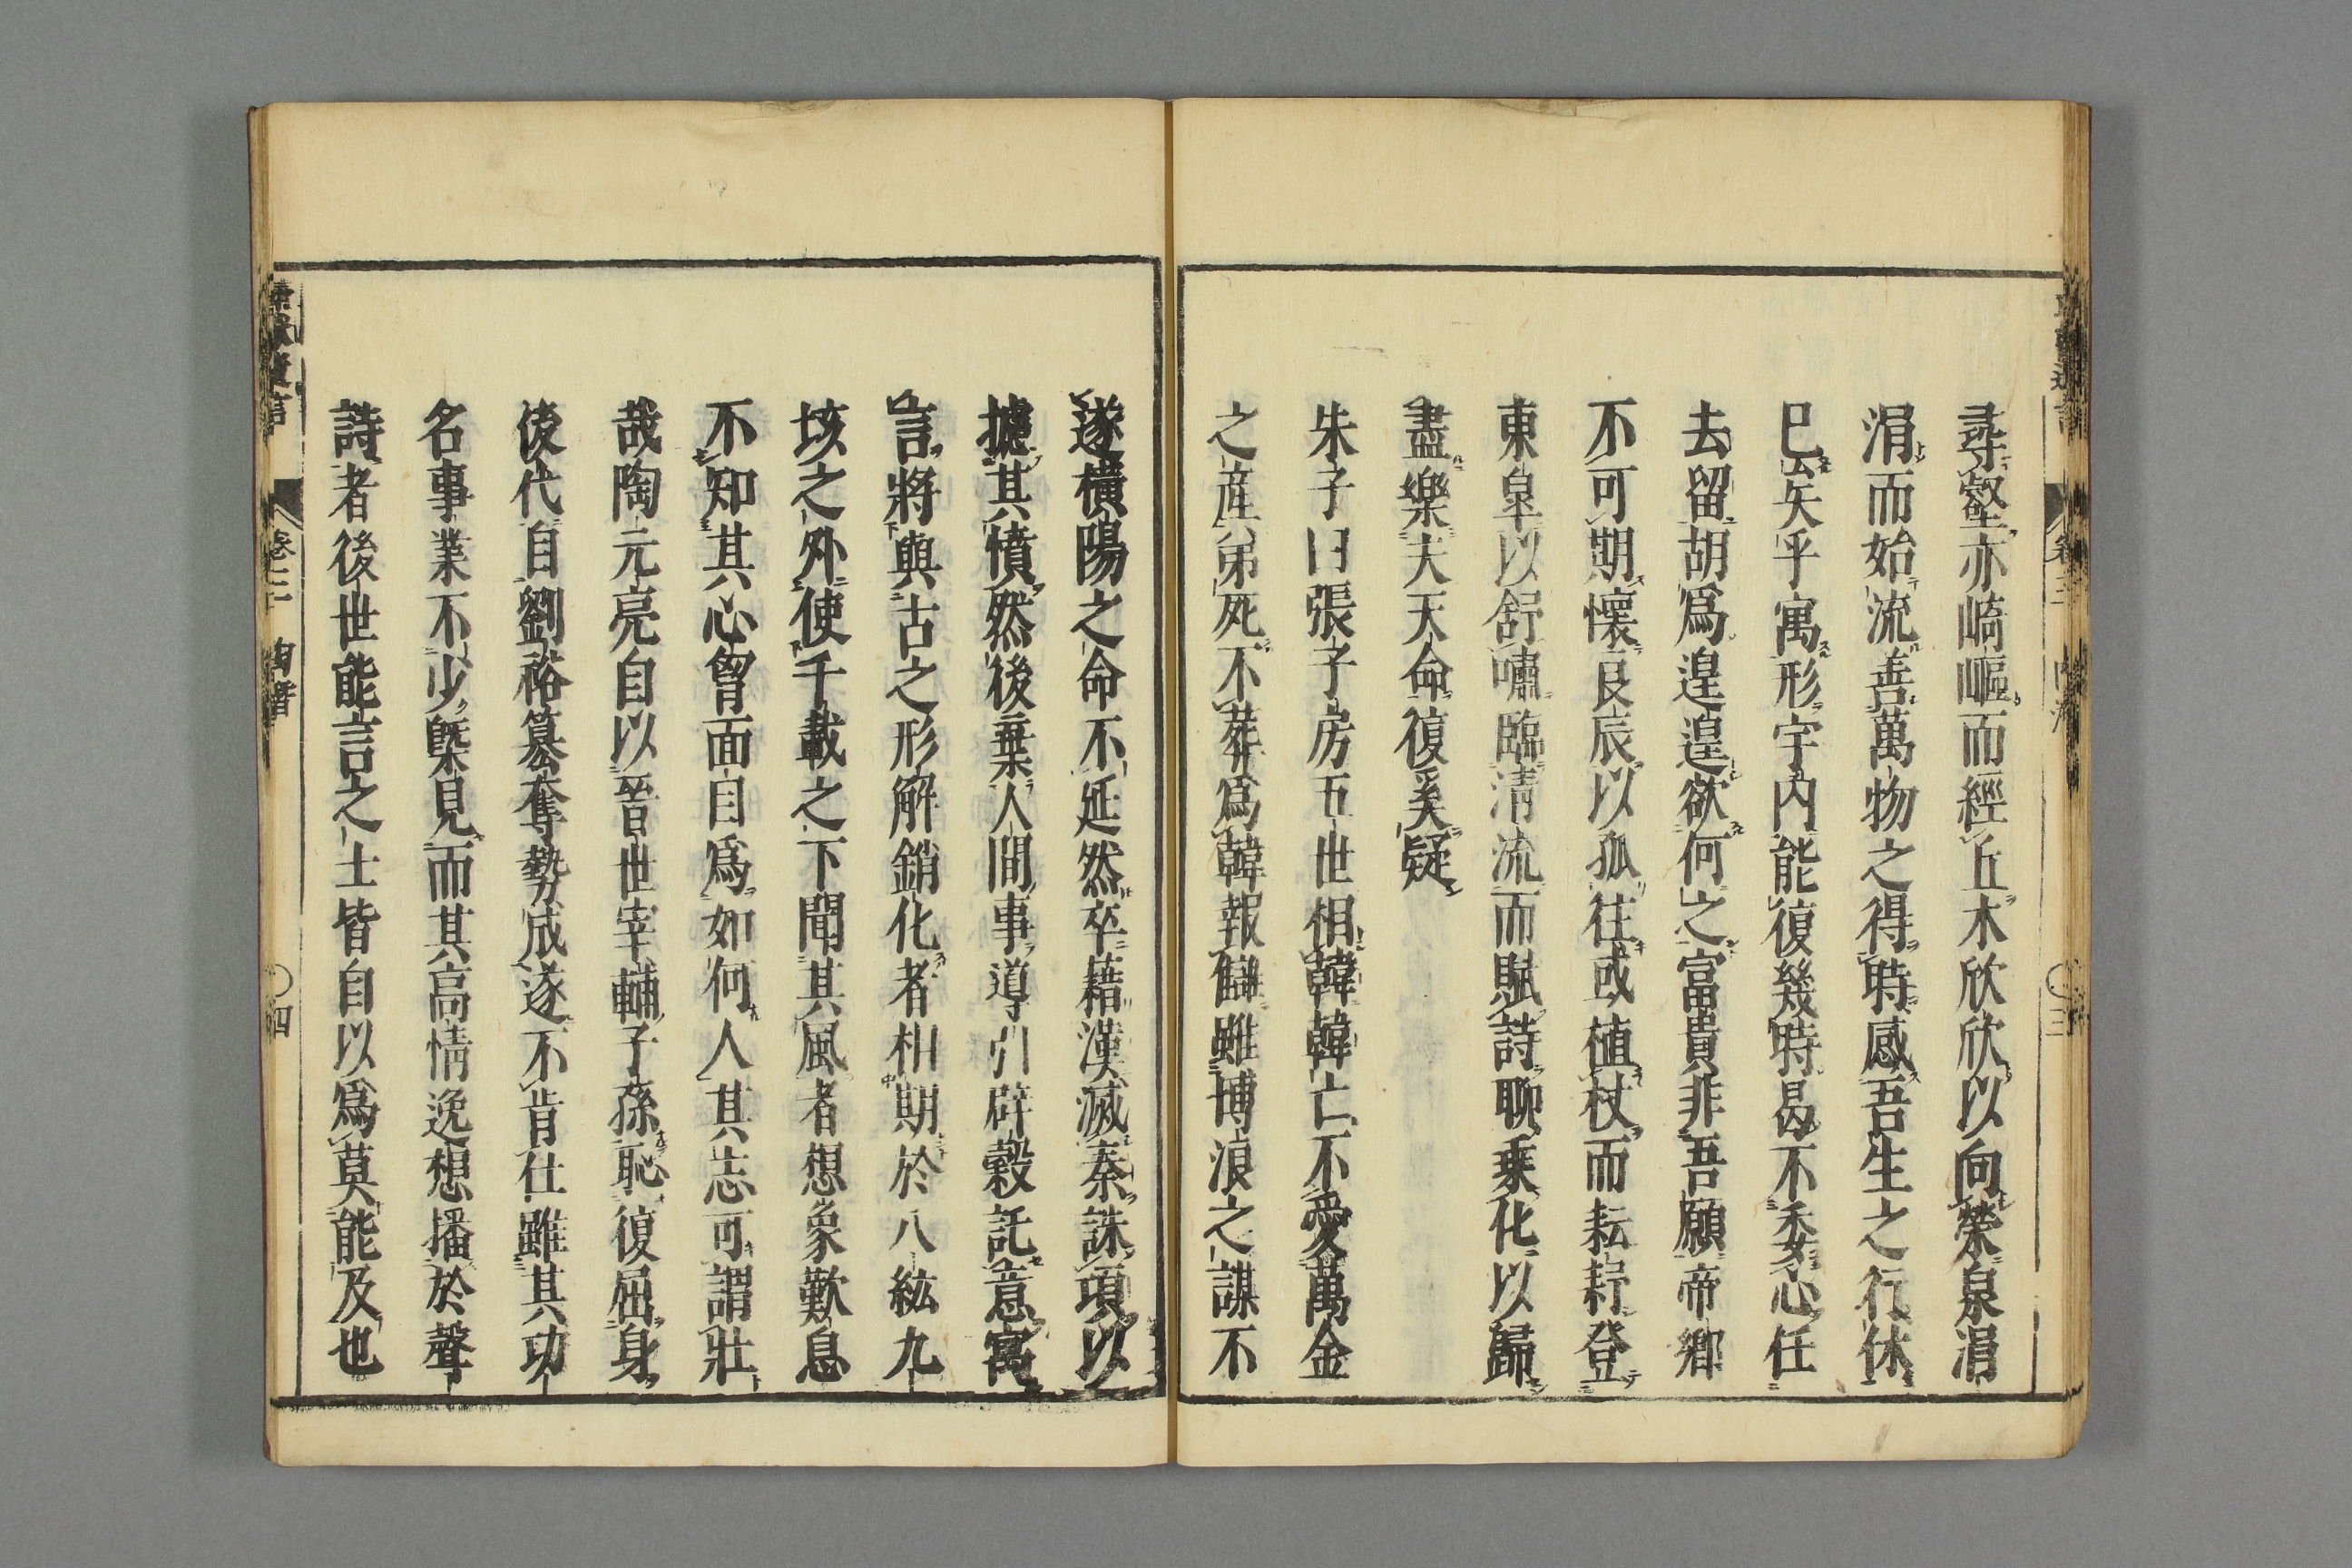 尋壑亦崎嶇而經丘木欣欣以向榮泉涓
涓而始流善萬物之得時感吾生之行休
已矣乎寓形宇內能復幾時曷不委心任
去留胡爲遑遑欲何之富貴非吾願帝鄉
不可期懷良辰以孤往或植杖而耘耔登
東皐以舒嘯臨淸流而賦詩聊乗化以歸
盡樂夫天命復奚疑
朱子曰張子房五世相韓韓亡不愛萬金
之産弟死不葬爲韓報讎雖博浪之謀不
遂橫陽之命不延然卒藉漢滅秦誅項以
攄其憤然後棄人間事導引辟糓託意寓
言將與古之形解銷化者相期於八紘九
垓之外使千載之下聞其風者想象歎息
不知其心胷面目爲如何人其志可謂壯
哉陶元亮自以晉世宰輔子孫恥復屈身
後代自劉裕簒奪勢成遂不肯仕雖其功
名事業不少槩見而其高情逸想播於聲
詩者後世能言之士皆自以爲莫能及也
卷三 陶潛
四